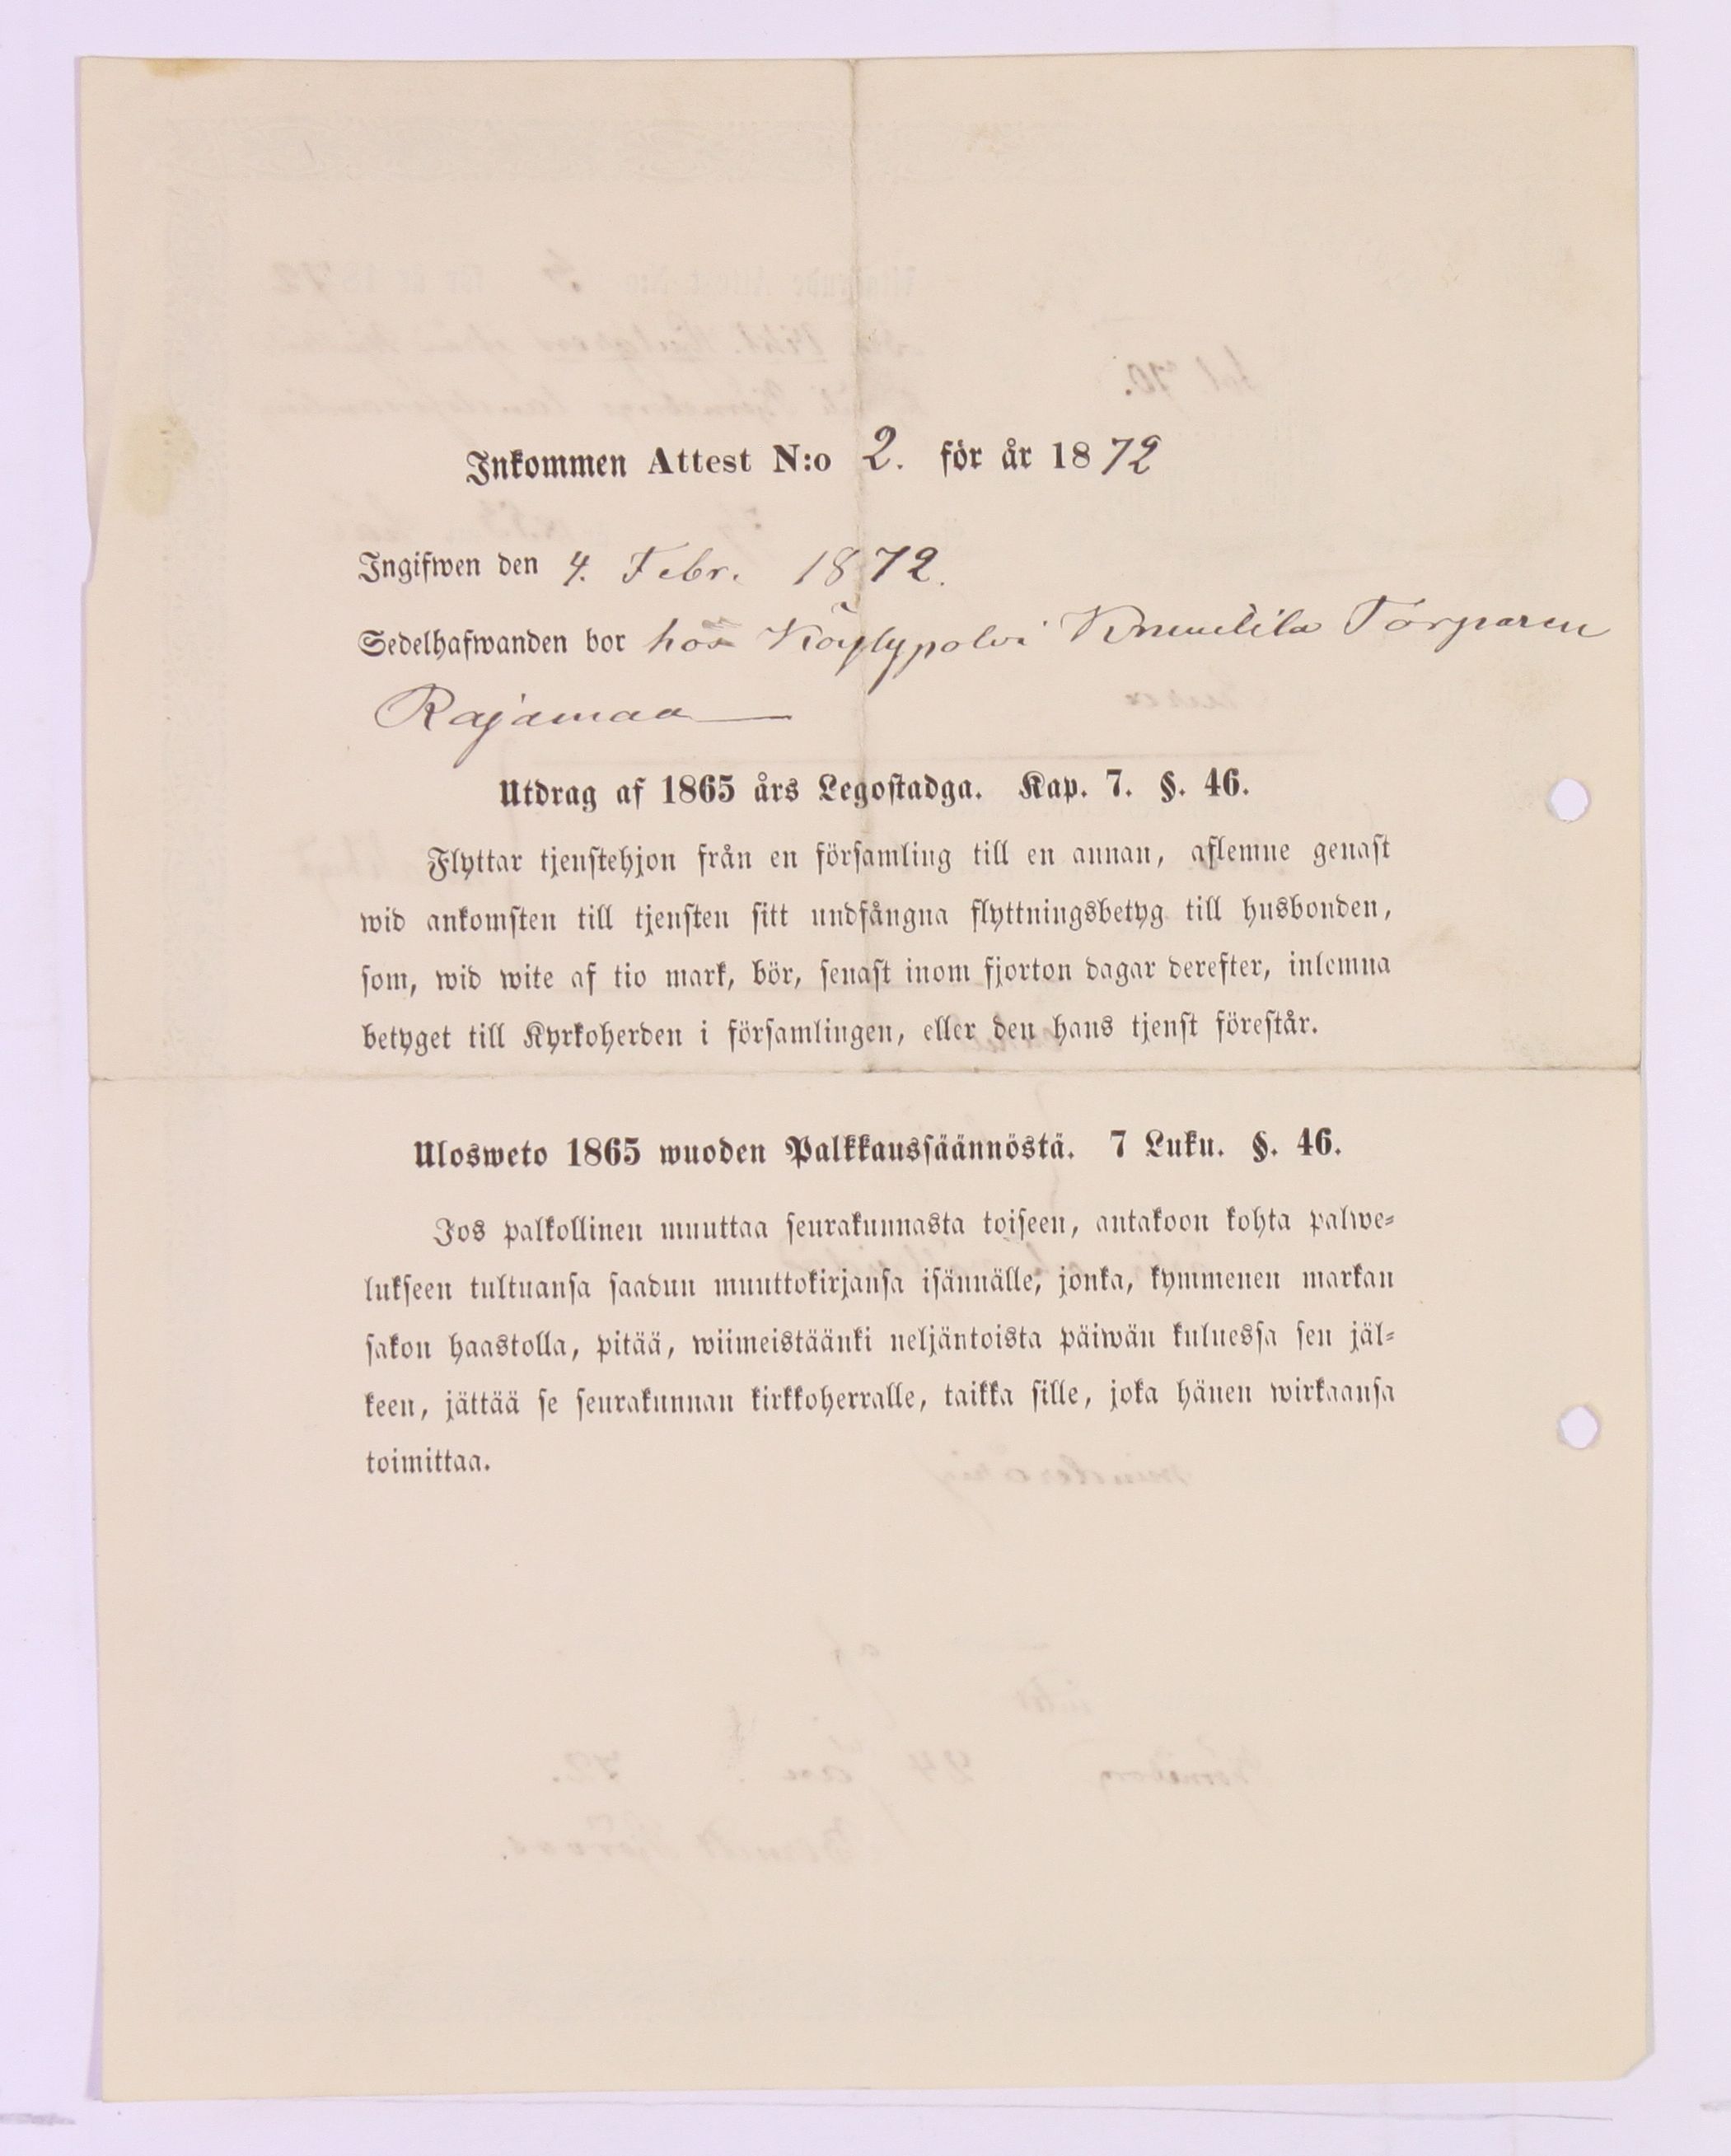 Inkommen Attest N:o 2. för år 1872
Ingifwen den 4. Febr. 1872.
Sedelhafwanden bor hos Köylypolvi Knuutila Torparen
Rajamaa
Utdrag af 1865 års Legostadga. Kap. 7. §. 46.
Flyttar tjenstehjon från en församling till en annan, aflemne genast
wid ankomsten till tjensten sitt undfångna flyttningsbetyg till husbonden,
som, wid wite af tio mark, bör, senast inom fjorton dagar derefter, inlemna
betyget till Kyrkoherden i församlingen, eller den hans tjenst förestår.
Ulosweto 1865 wuoden Palkkaussäännöstä. 7 Luku. §. 46.
Jos palkollinen muuttaa seurakunnasta toiseen, antakoon kohta palwe-
lukseen tultuansa saadun muuttokirjansa isännälle, jonka, kymmenen markan
sakon haastolla, pitää, wiimeistäänki neljäntoista päiwän kuluessa sen jäl-
keen, jättää se seurakunnan kirkkoherralle, taikka sille, joka hänen wirkaansa
toimittaa.